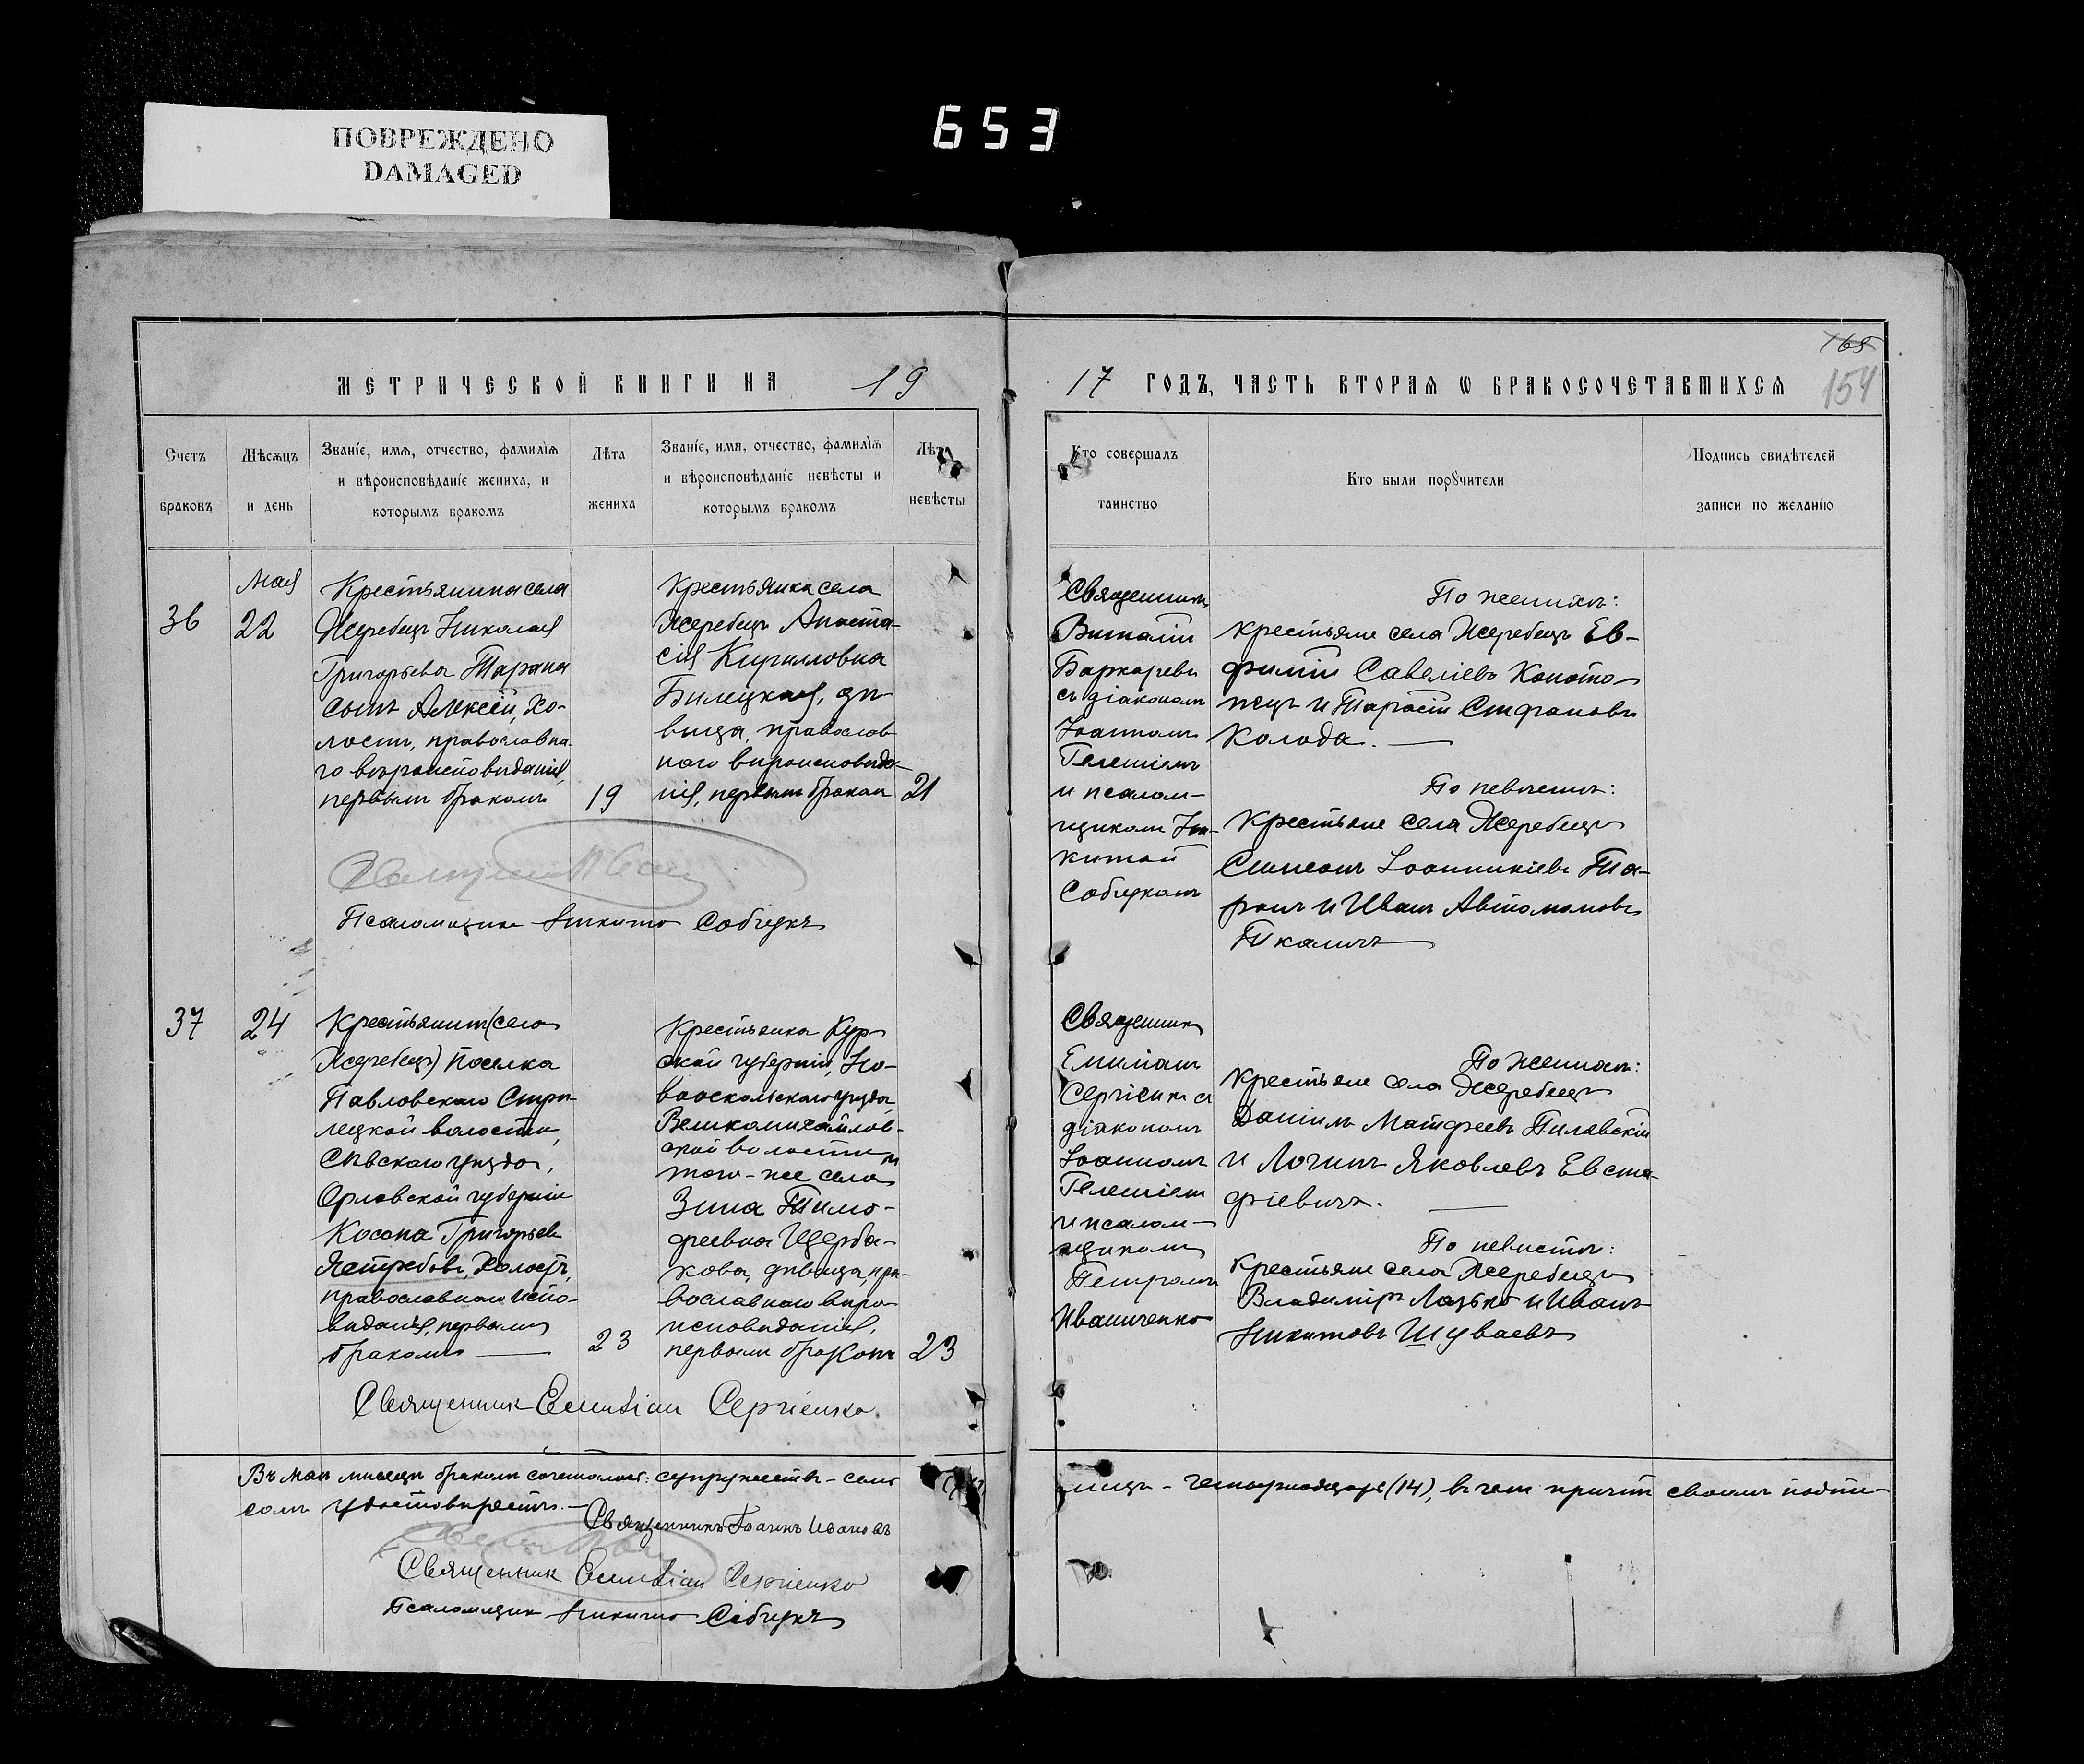 ПОВРЕЖДЕНО
DAMAGED
653
МЕТРИЧЕСКОЙ КНИГИ НА 19
17 ГОДЪ, ЧАСТЬ ВТОРАЯ Ѡ БРАКОСОЧЕТАВШИХСЯ
165
154
Счетъ браковъ
Мѣсяцъ и день
Званіе, имя, отчество, фамилія
и вѣроисповѣданіе жениха, и
которымъ бракомъ
Лѣта жениха
Званіе, имя, отчество, фамилія
и вѣроисповѣданіе невѣсты и
которымъ бракомъ
Лѣта невѣсты
Кто совершалъ
таинство
Кто были порꙋчители
Подпись свидѣтелей
записи по желанію
36
Мая
22
Крестьянина села
Жеребецъ Николая
Григорьева Тарана
сынъ Алексій, хо-
лостъ, православна-
го вѣроисповѣданія,
первымъ бракомъ
19
Крестьянка села
Жеребецъ Анаста-
сія Кирилловна
Билецкая, дѣ-
вица, православ
наго вѣроисповѣда-
нія, первымъ бракомъ
21
Священникъ
Виталій
съ діакономъ
Іоанномъ
Гелешіемъ
и псалом-
щикомъ Ни-
китой
Собцукомъ
По женихѣ:
крестьяне села Жеребецъ Ев-
фимій Савеліевъ Конота-
пецъ и Тарасій Стефановъ
Колода.
По невѣстѣ:
Крестьяне села Жеребецъ
Симеонъ Іоанникіевъ Та-
ранъ и Иванъ Автономовъ
Ткаличъ
Псаломщикъ Никита Собцукъ
37
24
Крестьянинъ (села
Жеребецъ) поселка
Павловскаго Стрѣ-
лецкой волости,
Сѣвскаго уѣзда,
Орловской губерніи
Косьма Григорьевъ
Ястребовъ, холостъ,
православнаго испо-
вѣданія, первымъ
бракомъ
23
Крестьянка Кур-
ской губерніи, Но-
вооскольскаго уѣзда,
Великомихайлов-
ской волости и
того-же села
Зина Тимо-
феевна Щерба-
кова, дѣвица, пра-
вославнаго вѣро-
исповѣданія,
первымъ бракомъ
23
Священникъ
Емиліанъ
Сергіенко съ
діакономъ
Іоанномъ
Гелешіемъ
и псалом-
щикомъ
Петромъ
Иваниченко
По женихѣ:
Крестьяне села Жеребецъ
Даніилъ Матфеевъ Пилявскій
и Логинъ Яковлевъ Евста-
фіевичъ.
По невѣстѣ:
Крестьяне села Жеребецъ
Владиміръ Лазько и Иванъ
Никитовъ Шуваевъ
Священникъ Емиліан Сергіенко.
Въ маѣ мѣсяцѣ бракомъ сочеталось: супружествъ - семь
лицъ - четырнадцать (14), въ чемъ причтъ своимъ подпи-
сомъ удостовѣряетъ.
Священникъ Іоаннъ Ивановъ
Священник Емиліан Сергіенко
Псаломщикъ Никита Собцукъ